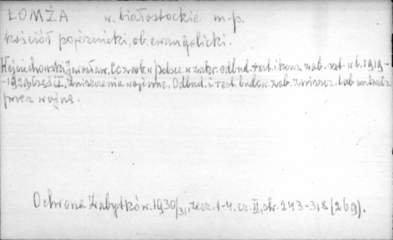 ŁOMŻA w. białostockie m-p.
kościół pojezuicki, ob. ewangelicki.
Wojciechowski Jarosław. Co zrob. w Polsce w zakr. odbud. rest. i kons. zab. szt. w l. 1919-
-1929. Część I. Zniszczenia wojenne. Odbud. i rest. budow. zab. zniszcz. lub uszkodz.
przez wojnę.
Ochrona Zabytków. 1930/31, zesz. 1-4. cz. II, str. 243-318 (269).